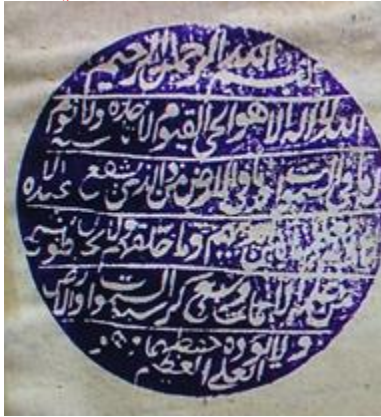 بسم الله الرحمن الرحيم
الله لا اله الا هو الحي القيوم لا تاخذه سنة ولا نوم
له ما في السموات وما في الارض من ذا الذي يشفع عنده الا
يعلم ما بين ايديهم وما خلفهم ولا يحيطون بشيء
من علمه الا بما شاء وسع كرسيه السموات والارض
ولا يؤده حفظهما وهو
العلي العظيم